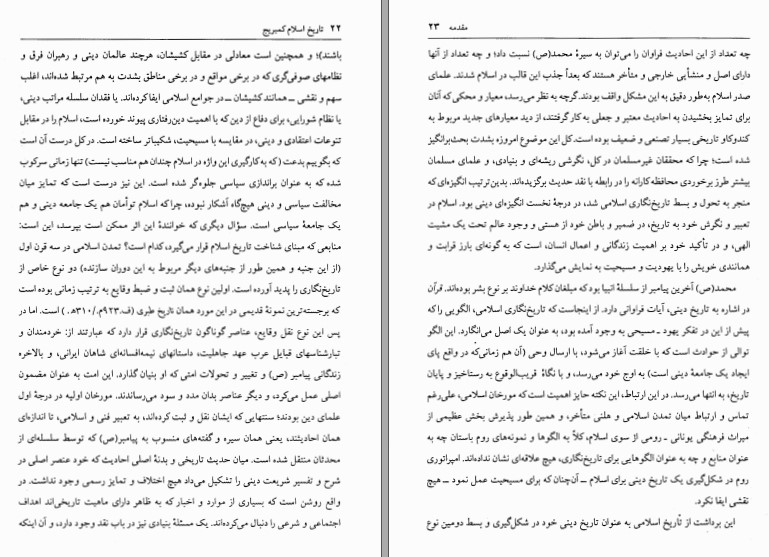 ۲۲ تاریخ اسلام کمبریج
باشند)؛ و همچنین است معادلی در مقابل کشیشان، هرچند عالمان دینی و رهبران فرق و
نظامهای صوفی‌گری که در برخی مواقع و در برخی مناطق بشدت به هم مرتبط شده‌اند، اغلب
سهم و نقشی ــ همانند کشیشان ــ در جوامع اسلامی ایفا کرده‌اند. با فقدان سلسله مراتب دینی،
یا نظام شورایی، برای دفاع از دین که با اهمیت دین‌رفتاری پیوند خورده است، اسلام را در مقابل
تنوعات اعتقادی و دینی، در مقایسه با مسیحیت، شکیباتر ساخته است. در کل درست آن است
که بگوییم بدعت (که به‌کارگیری این واژه در اسلام چندان هم مناسب نیست) تنها زمانی سرکوب
شده که به عنوان براندازی سیاسی جلوه‌گر شده است. این نیز درست است که تمایز میان
مخالفت سیاسی و دینی هیچ‌گاه آشکار نبوده، چرا که اسلام توأمان هم یک جامعه دینی و هم
یک جامعهٔ سیاسی است. سؤال دیگری که خوانندهٔ این اثر ممکن است بپرسد، این است:
منابعی که مبنای شناخت تاریخ اسلام قرار می‌گیرد، کدام است؟ تمدن اسلامی در سه قرن اول
(از این جنبه و همین طور از جنبه‌های دیگر مربوط به این دوران سازنده) دو نوع خاص از
تاریخ‌نگاری را پدید آورده است. اولین نوع همان ثبت و ضبط وقایع به ترتیب زمانی بوده است
که برجسته‌ترین نمونهٔ قدیمی در این مورد همان تاریخ طبری (ف.۹۲۳م./۳۱۰ه‍.) است. اما در
پس این نوع نقل وقایع، عناصر گوناگون تاریخ‌نگاری قرار دارد که عبارتند از: خردمندان و
تبارشناسهای قبایل عرب عهد جاهلیت، داستانهای نیمه‌افسانه‌ای شاهان ایرانی، و بالاخره
زندگانی پیامبر (ص) و تغییر و تحولات امتی که او بنیان گذارد. این امت به عنوان مضمون
اصلی عمل می‌کرد، و دیگر عناصر بدان مدد و سود می‌رساندند. مورخان اولیه در درجهٔ اول
علمای دین بودند؛ سنتهایی که ایشان نقل و ثبت کرده‌اند، به تعبیر فنی و اسلامی، تا اندازه‌ای
همان احادیثند، یعنی همان سیره و گفته‌های منسوب به پیامبر(ص) که توسط سلسله‌ای از
محدثان منتقل شده است. میان حدیث تاریخی و بدنهٔ اصلی احادیث که خود عنصر اصلی در
شرح و تفسیر شریعت دینی را تشکیل می‌داد هیچ اختلاف و تمایز رسمی وجود نداشت. در
واقع روشن است که بسیاری از موارد و اخبار که به ظاهر دارای ماهیت تاریخی‌اند اهداف
اجتماعی و شرعی را دنبال می‌کرده‌اند. یک مسئلهٔ بنیادی نیز در باب نقد وجود دارد، و آن اینکه
مقدمه ۲۳
چه تعداد از این احادیث فراوان را می‌توان به سیرهٔ محمد(ص) نسبت داد؛ و چه تعداد از آنها
دارای اصل و منشأیی خارجی و متأخر هستند که بعداً جذب این قالب در اسلام شدند. علمای
صدر اسلام به‌طور دقیق به این مشکل واقف بودند. گرچه به نظر می‌رسد، معیار و محکی که آنان
برای تمایز بخشیدن به احادیث معتبر و جعلی به کار گرفتند، از دید معیارهای جدید مربوط به
کندوکاو تاریخی بسیار تصنعی و ضعیف بوده است. کل این موضوع امروزه بشدت بحث‌برانگیز
شده است؛ چرا که محققان غیرمسلمان در کل، نگرشی ریشه‌ای و بنیادی، و علمای مسلمان
بیشتر طرز برخوردی محافظه‌کارانه را در رابطه با نقد حدیث برگزیده‌اند. بدین‌ترتیب انگیزه‌ای که
منجر به تحول و بسط تاریخ‌نگاری اسلامی شد، در درجهٔ نخست انگیزه‌ای دینی بود. اسلام در
تعبیر و نگرش خود به تاریخ، در ضمیر و باطن خود از هستی و وجود عالم تحت یک مشیت
الهی، و در تأکید خود بر اهمیت زندگانی و اعمال انسان، است که به گونه‌ای بارز قرابت و
همانندی خویش را با یهودیت و مسیحیت به نمایش می‌گذارد.
محمد(ص) آخرین پیامبر از سلسلهٔ انبیا بود که مبلغان کلام خداوند بر نوع بشر بوده‌اند. قرآن
در اشاره به تاریخ دینی، آیات فراوانی دارد. از اینجاست که تاریخ‌نگاری اسلامی، الگویی را که
پیش از این در تفکر یهود ـ مسیحی به وجود آمده بود، به عنوان یک اصل می‌انگارد. این الگو
توالی از حوادث است که با خلقت آغاز می‌شود، با ارسال وحی (آن هم زمانی‌که در واقع پای
ایجاد یک جامعهٔ دینی است) به اوج خود می‌رسد، و با نگاهٔ قریب‌الوقوع به رستاخیز و پایان
تاریخ، به انتها می‌رسد. در این ارتباط، این نکته حایز اهمیت است که مورخان اسلامی، علی‌رغم
تماس و ارتباط میان تمدن اسلامی و هلنی متأخر، و همین طور پذیرش بخش عظیمی از
میراث فرهنگی یونانی ـ رومی از سوی اسلام، کلاً به الگوها و نمونه‌های روم باستان چه به
عنوان منابع و چه به عنوان الگوهایی برای تاریخ‌نگاری، هیچ علاقه‌ای نشان نداده‌اند. امپراتوری
روم در شکل‌گیری یک تاریخ دینی برای اسلام ــ آن‌چنان که برای مسیحیت عمل نمود ــ هیچ
نقشی ایفا نکرد.
این برداشت از تاریخ اسلامی به عنوان تاریخ دینی خود در شکل‌گیری و بسط دومین نوع